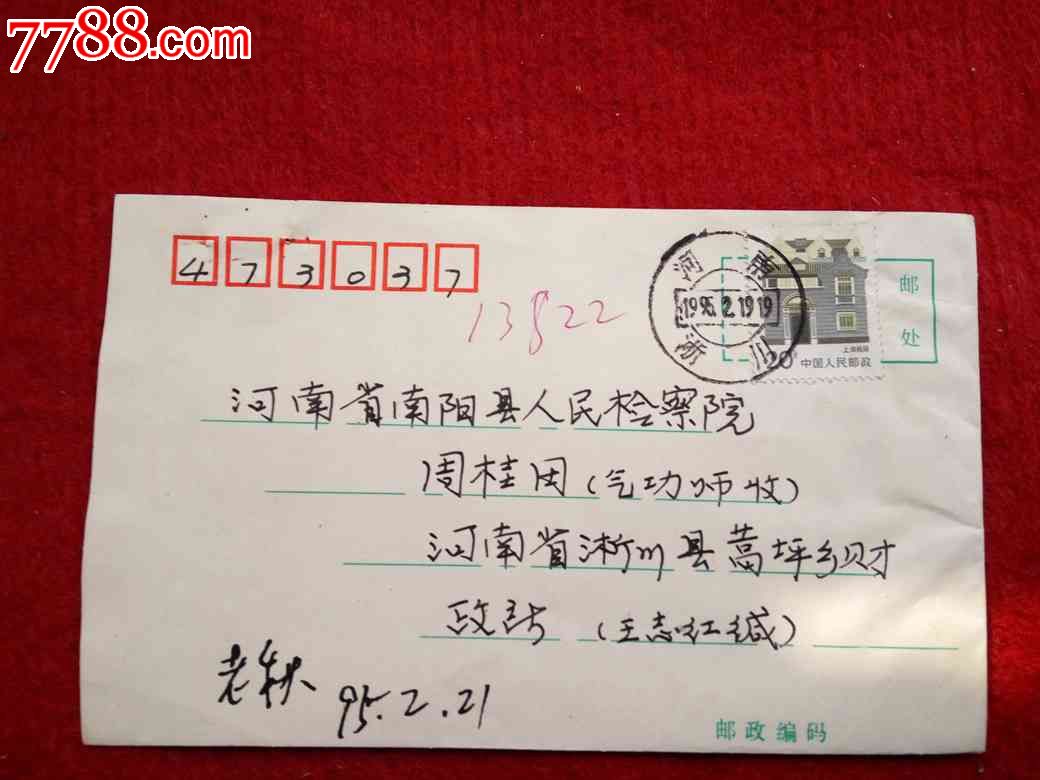 7788.com
473037
河南
1995.2.1919
淅川
上海民居
20分 中国人民邮政
邮
处
13822
河南省南阳县人民检察院
周桂田(气功师收)
河南省淅川县蒿坪乡财
政所 (王志红缄)
95.2.21
邮政编码